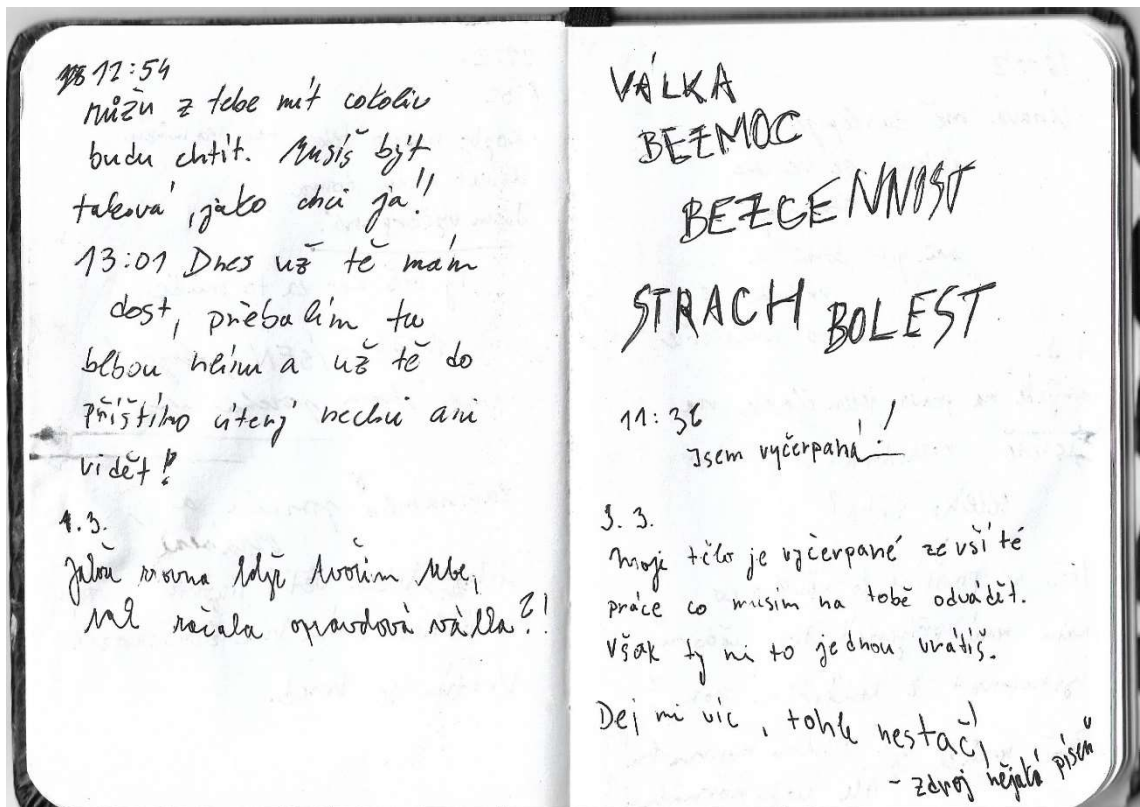 12:54
můžu z tebe mít cokoliv
budu chtít. Musíš být
taková, jako chci já!!
13:01 Dnes už tě mám
dost, přebalím tu
blbou hlínu a už tě do
příštího úterý nechci ani
vidět!
1.3.
zrovna když tvořím tebe,
začala opravdová válka?!
VÁLKA
BEZMOC
BEZCENNIST
STRACH BOLEST
11:36
Jsem vyčerpaná!
3.3.
Moje tělo je vyčerpané ze vší té
práce co musím na tobě odvádět.
Však ty mi to jednou vrátíš.
Dej mi víc, tohle nestačí
- zdroj nějaká píseň